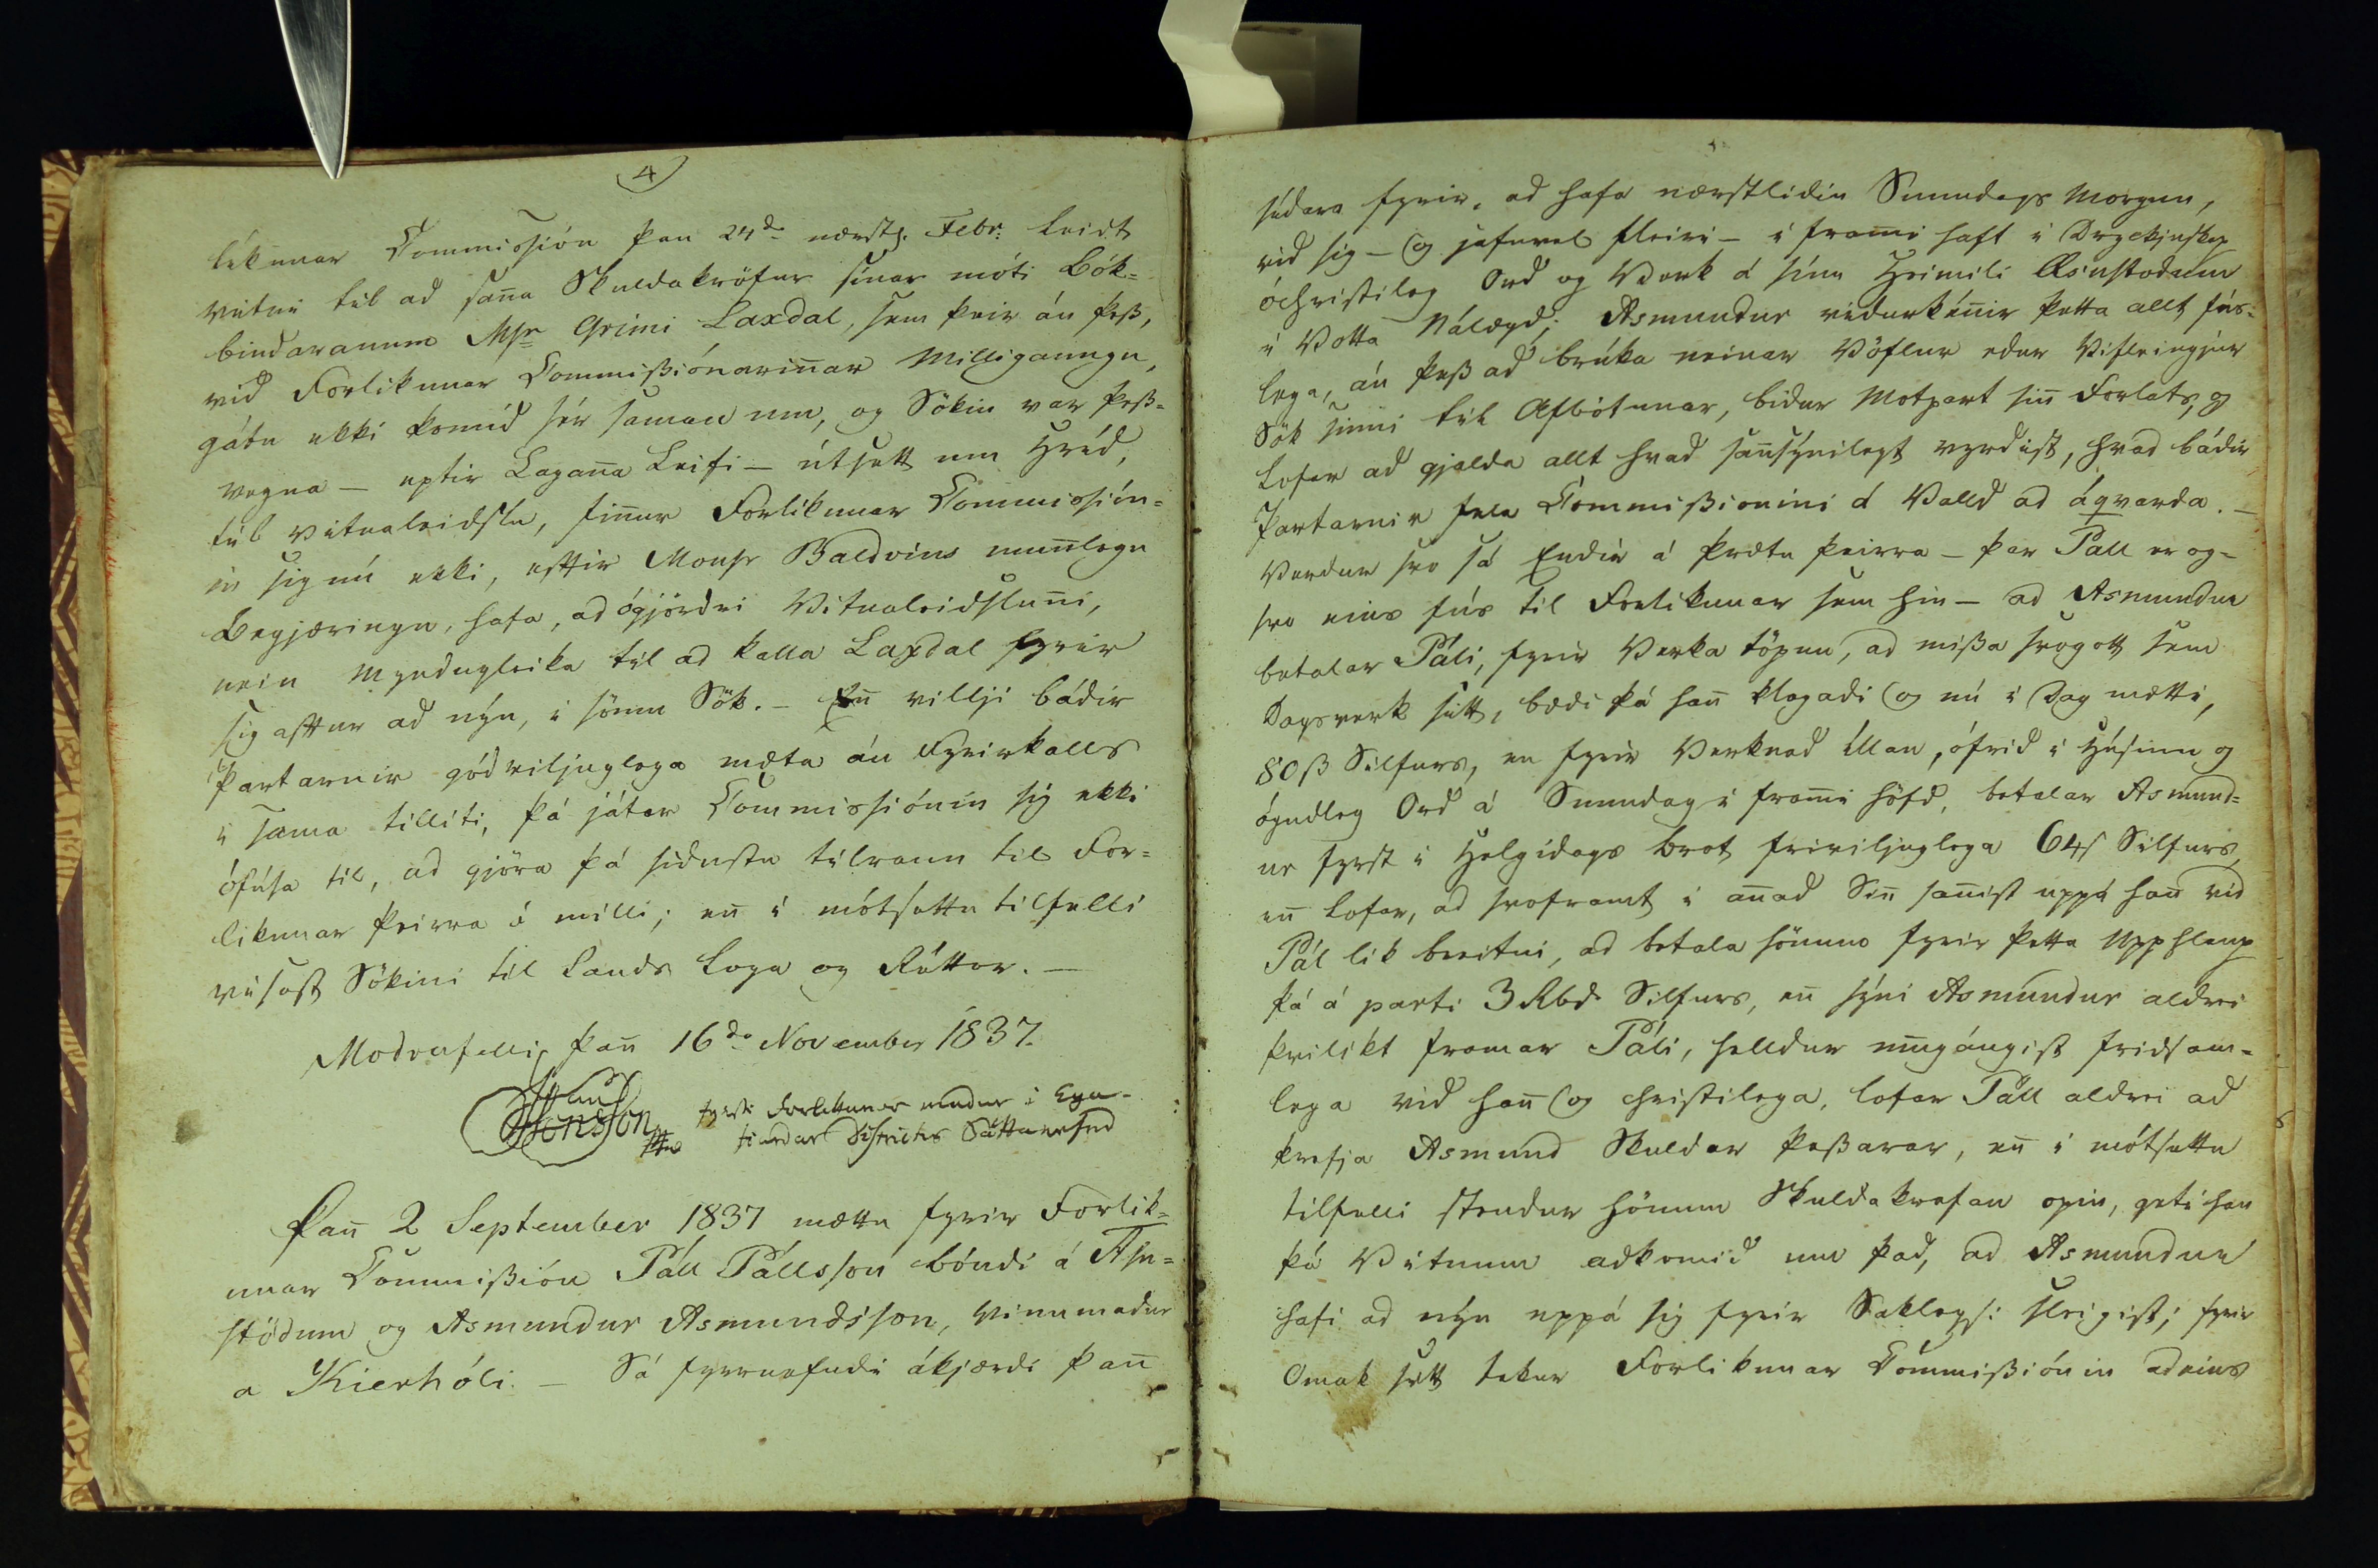 4
líkunar Commissión þan 24da næstl. Febr: leidt
vitni til ad sana Skuldakröfur sínar móti Bók-
bindaranum Msr Grími Laxdal, sem þeir án þess,
vid Forlikunar Commissiónarinar Milligaungu,
gátu ekki komid sér saman um, og Sökin var þess-
vegna — eptir Lagana Leifi — útsett um Hríd,
til Vitnaleidslu, finur Forlíkunar Commissión-
in sig nú ekki, eftir Monsr Baldvins munlegu
Begjæringu, hafa, ad ógjördri Vitnaleidsluni,
nein Myndugleika til ad kalla Laxdal fyrir
sig aftur ad nýu, í sömu Sök. — En vilji bádir
Partarnir gódviljuglega mæta án Fyrirkalls
í sama tilliti, þá játar Commissiónin sig ekki
ófúsa til, ad gjöra þá sídustu tilraun til For-
likunar þeirra á milli; en í mótsettu tilfelli
vísast Sökini til Lands Laga og Réttar. —
Modrufelli þan 16da November 1837.
Jónsson
fyrsti Forlikunar madur í Eya-
fiardar Districts Sáttanefnd
Þan 2 September 1837 mættu fyrir Forlik-
unar Commissión Páll Pállsson bóndi á Asn-
stödum og Asmundur Asmundsson, Vinnumadur
a Kierhóli. — Sá fyrrnefndi ákjærdi þan
sídara fyrir, ad hafa næstlidin Sunndags Morgun,
vid sig — og jafnvel fleiri — í frami haft í Dryckjuskap
óchristileg Ord og Verk á sínu Heimili Asnstodum
í Votta Nálægd; Asmundur vidurkénir þetta allt fús-
lega, án þess ad brúka neinar Vöflur edur Vifleingjur
Sök sinni til Afbötunar, bidur Motpart sin Forlats, og
lofar ad gjalda allt hvad sansýnilegt vyrdist, hvad bádir
Partarnir fela Commissionini á Valld ad áqvarda. —
Verdur svo sá Endir á þrætu þeirra — þar Páll er og-
svo eins fús til Forlikunar sem hin — ad Asmundur
betalar Páli, fyrir Verka töpun, ad missa svogott sem
Dagsverk sitt, bædi þá han klagadi og nú í Dag mætti,
80 ß Silfurs, en fyrir Verknad íllan, ófrid í Húsinu og
ógudleg Ord á Sunndag í frami höfd, betalar Asmund-
ur fyrst í Helgidags brot friviljuglega 64 ß Silfurs,
en lofar, ad svoframt í anad Sin sanist uppá han vid
Pál lík breitni, ad betala hönum fyrir þetta Upphlaup
þá á parti 3 Rbd. Silfurs, en sýni Asmundur aldrei
þvilíkt framar Páli, helldur umgángist fridsam-
lega vid han og christilega, lofar Páll aldrei ad
krefja Asmund Skuldar þessarar, en í mótsettu
tilfelli stendur hönum Skuldakrafan opin, geti han
þá Vitnum adkomid um það, ad Asmundur
hafi ad nýu uppá sig fyrir Saklegs: sleigist; fyrir
Omak sitt tekur Forlikunar Commissiónin adeins